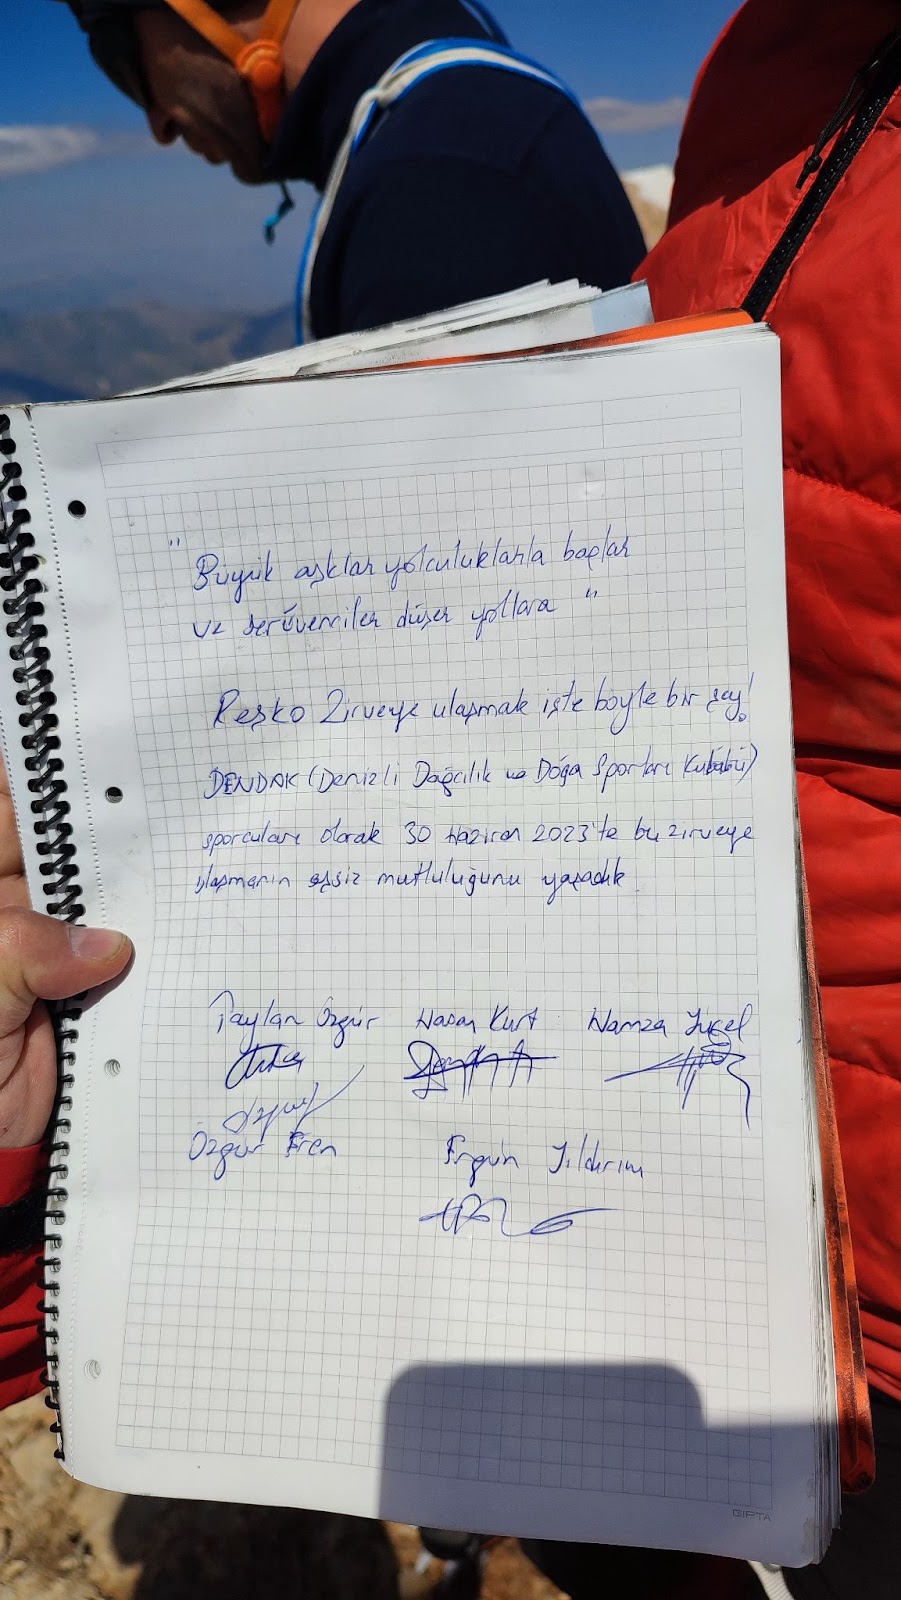 "Büyük aşklar yolculuklarla başlar
ve serüvenciler düşer yollara"
Reşko Zirveye ulaşmak işte böyle bir şey!
DENDAK (Denizli Dağcılık ve Doğa Sporları Kulübü)
sporcuları olarak 30 Haziran 2023'te bu zirveye
ulaşmanın eşsiz mutluluğunu yaşadık
Taylan Özgür Hasan Kurt Hamza Yücel
Özgür Eren Ergün Yıldırım
GIPTA